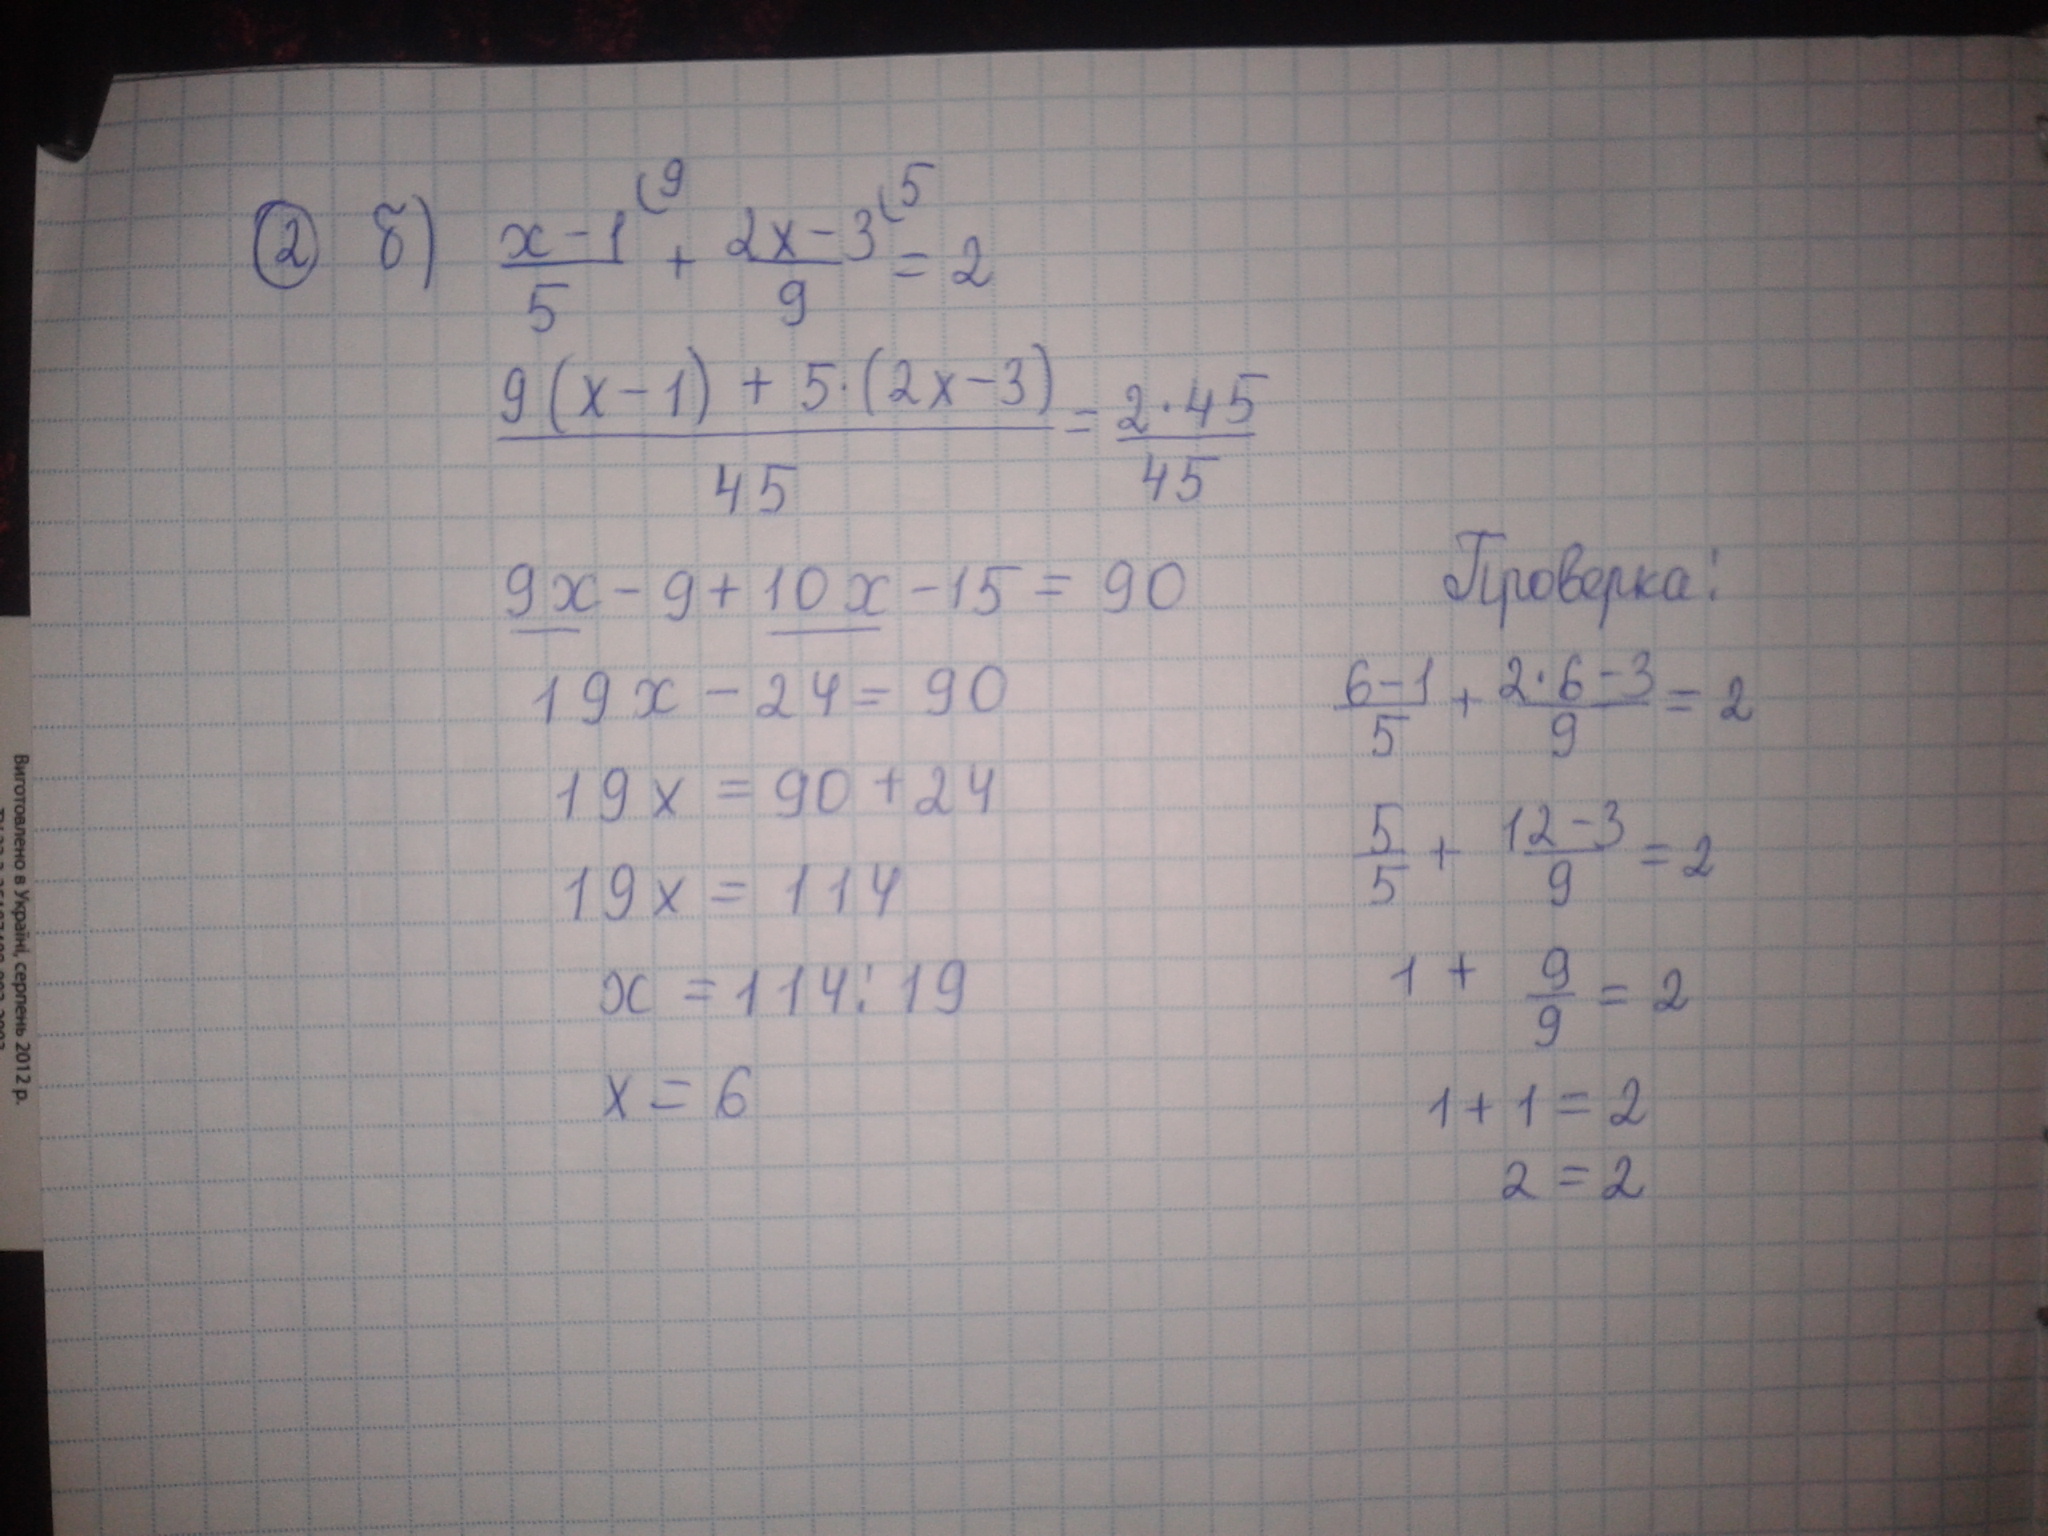 ② б) (x-1)/5 (9 + (2x-3)/9 (5 = 2
(9(x-1) + 5·(2x-3))/45 = (2·45)/45
9x - 9 + 10x - 15 = 90
19x - 24 = 90
19x = 90 + 24
19x = 114
x = 114 : 19
x = 6
Проверка:
(6-1)/5 + (2·6-3)/9 = 2
5/5 + (12-3)/9 = 2
1 + 9/9 = 2
1 + 1 = 2
2 = 2
Виготовлено в Україні, серпень 2012 р.